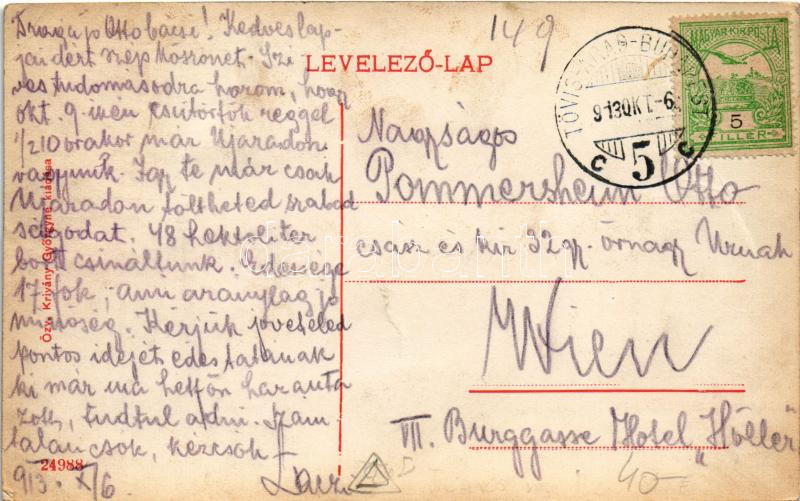 Draga jó Otto bácsi! Kedves lap-
jaidért szép köszönet. Szi
ves tudomásodra hozom, hogy
okt. 9-iken csütörtök reggel
1/2 10 órakor már Ujaradon
vagyunk. Igy te már csak
Ujaradon töltheted szabad
ságodat. 48 hektoliter
bort csináltunk. Édessége
17 fok, ami aránylag jó
minőség. Kérjük jöveteled
pontos idejét édes tatának
ki már ma hétfőn haza uta
zott, tudtul adni. Szám
talan csók, kézcsók
913. X/6.
149
LEVELEZŐ-LAP
TÖVIS-ARAD-BUDAPEST
913 OKT.-6
C 5 C
MAGYAR KIR. POSTA
5
FILLÉR
Nagyságos
Pommersheim Otto
csász és kir 32 gy. őrnagy Urnak
Wien
VII. Burggasse Hotel "Höller"
40-
Özv. Krivány Györgyné kiadása
24988
darabanth